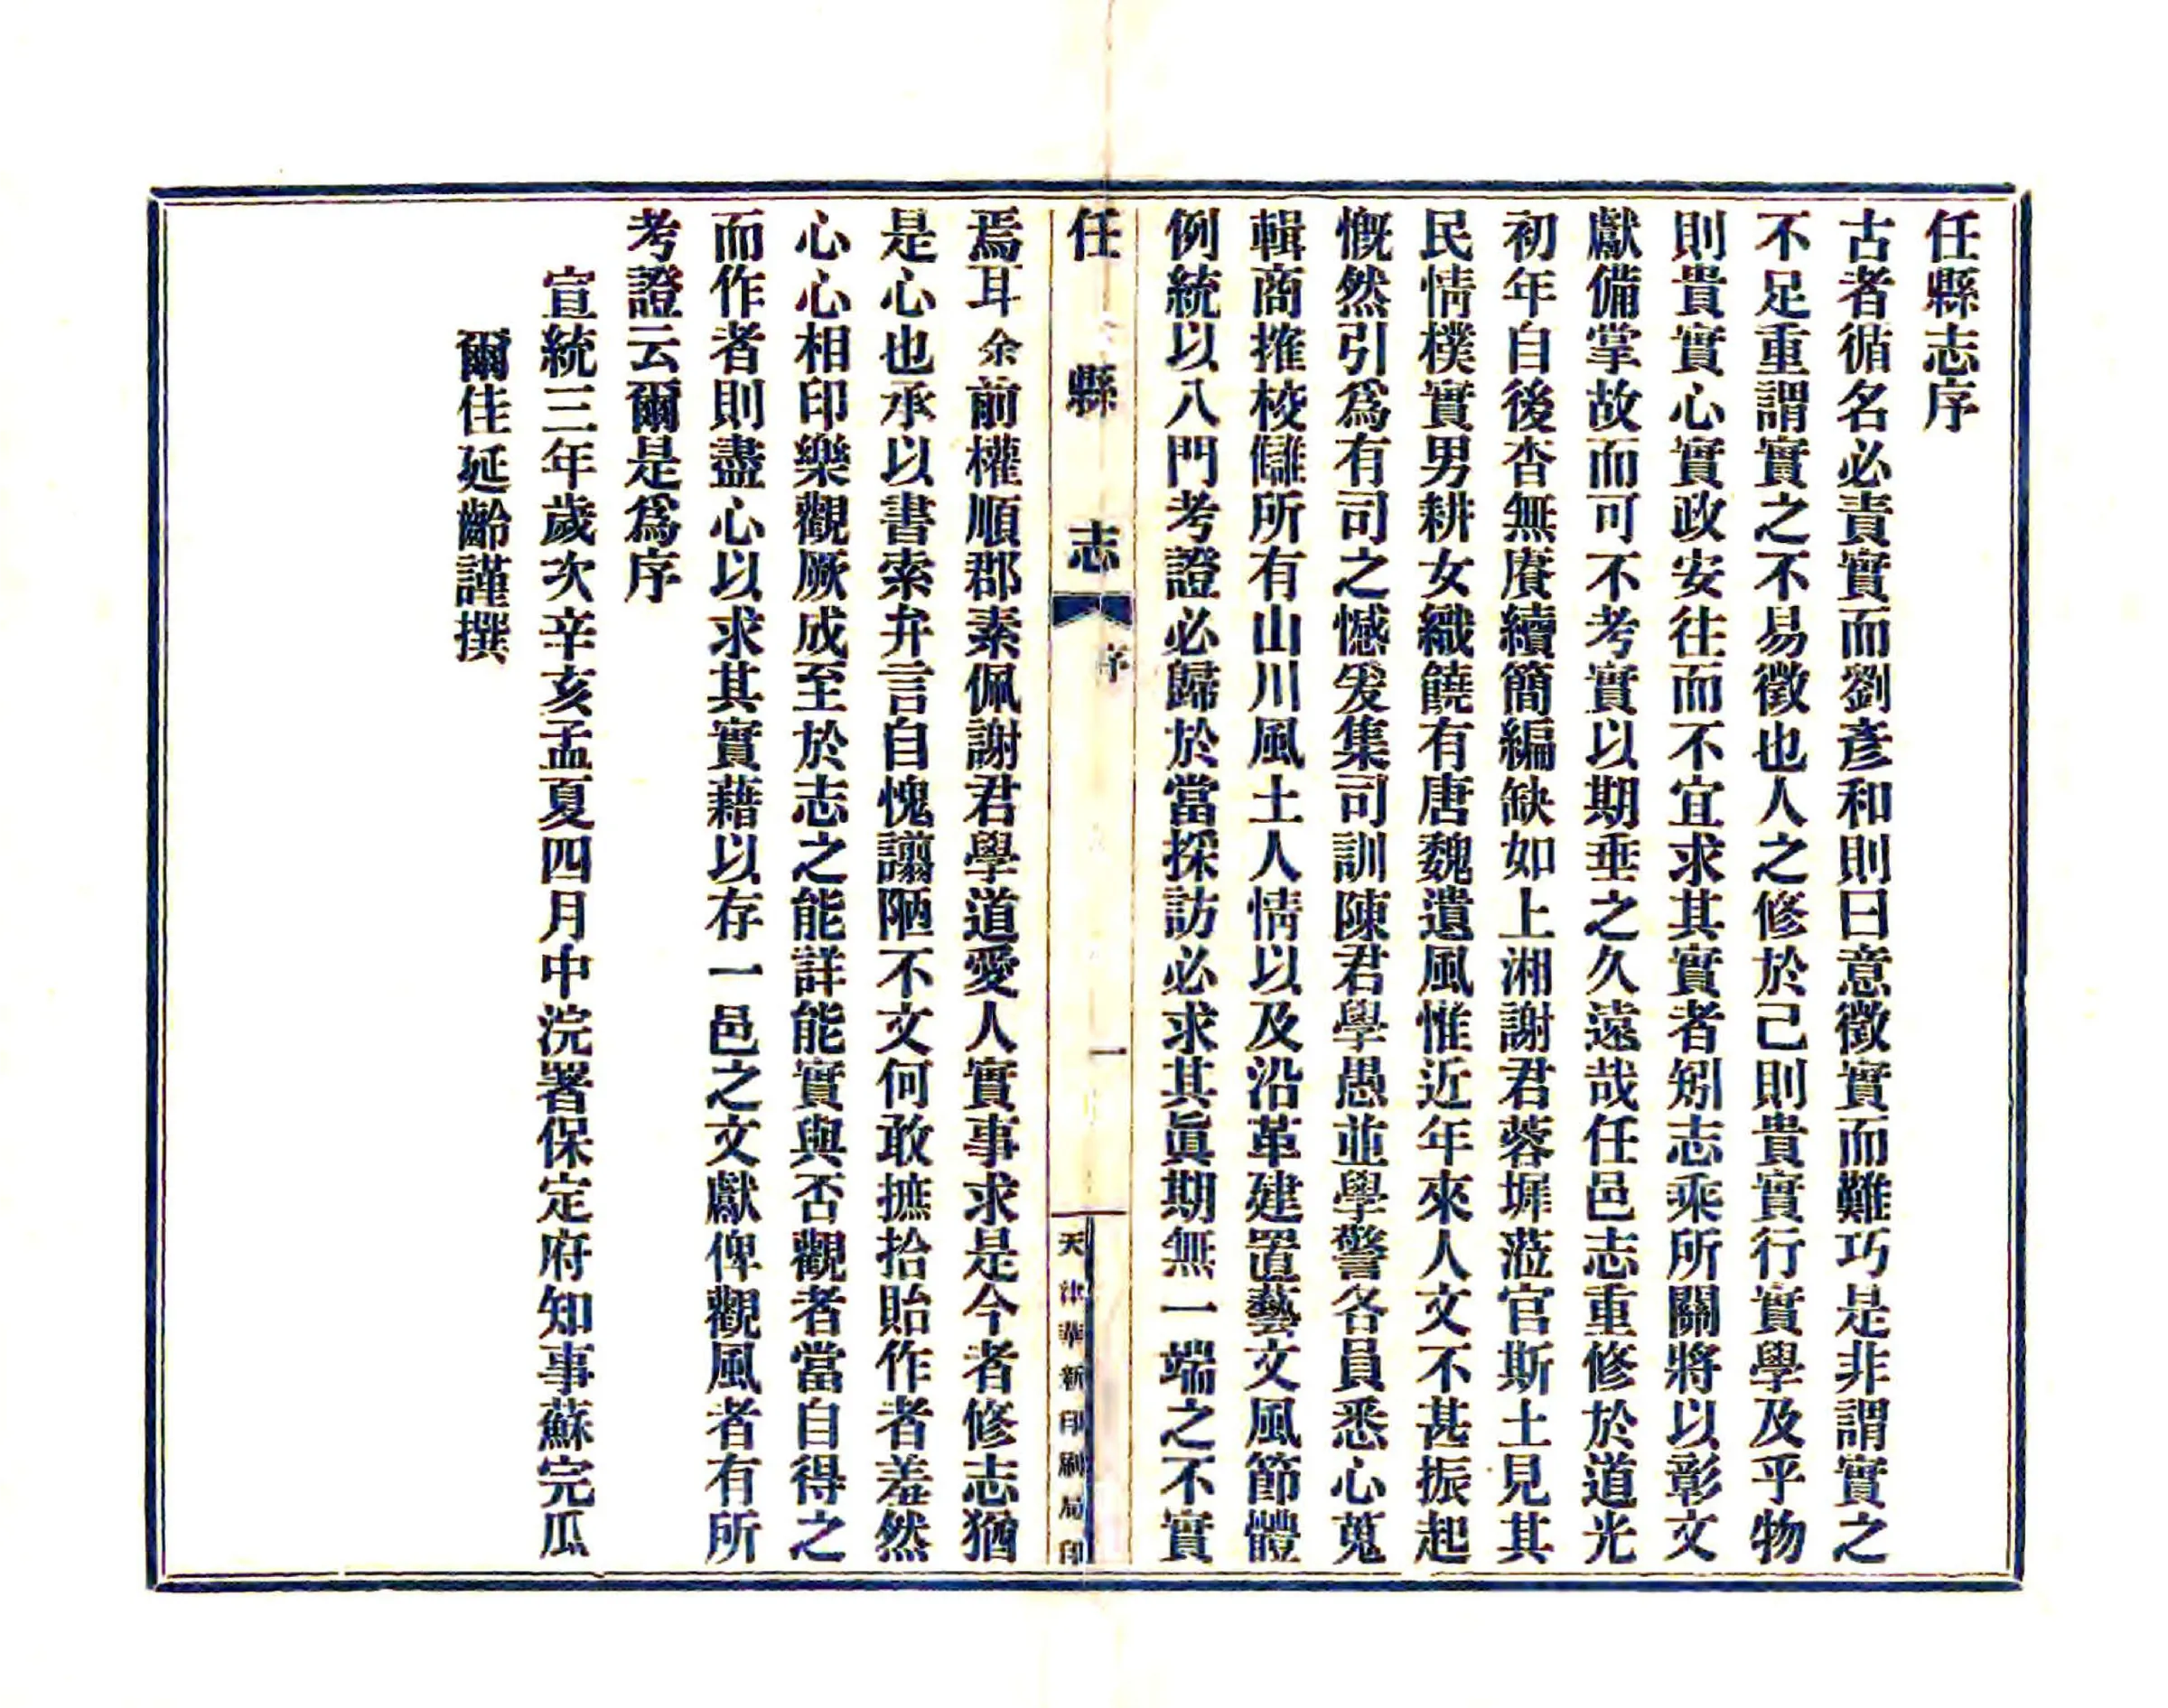 任縣志序
古者循名必責實而劉彥和則曰意徵實而難巧是非謂實之
不足重謂實之不易徵也人之修於己則貴實行實學及乎物
則貴實心實政安往而不宜求其實者矧志乘所關將以彰文
獻備掌故而可不考實以期垂之久遠哉任邑志重修於道光
初年自後杳無賡續簡編缺如上湘謝君蓉墀蒞官斯土見其
民情樸實男耕女織饒有唐魏遺風惟近年來人文不甚振起
慨然引爲有司之憾爰集司訓陳君學愚並學警各員悉心蒐
輯商搉校讎所有山川風土人情以及沿革建置藝文風節體
例統以八門考證必歸於當採訪必求其眞期無一端之不實
任縣志
序
一
天津華新印刷局印
焉耳余前權順郡素佩謝君學道愛人實事求是今者修志猶
是心也承以書索弁言自愧譾陋不文何敢摭拾貽作者羞然
心心相印樂觀厥成至於志之能詳能實與否觀者當自得之
而作者則盡心以求其實藉以存一邑之文獻俾觀風者有所
考證云爾是爲序
宣統三年歲次辛亥孟夏四月中浣署保定府知事蘇完瓜
爾佳延齡謹撰